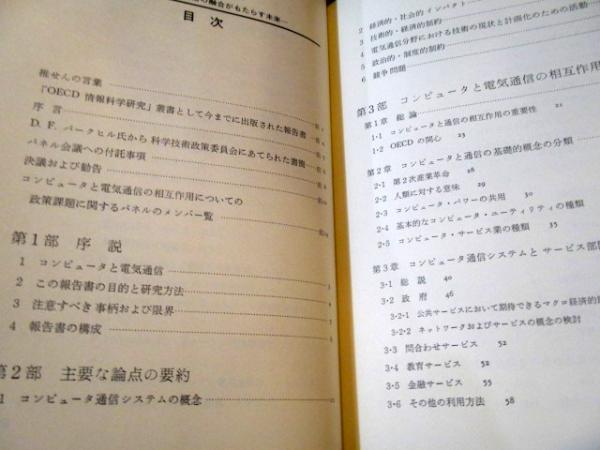 の融合がもたらす未来—
目次
推せんの言葉
「OECD 情報科学研究」叢書として今までに出版された報告書
序言
D. F. パークヒル氏から科学技術政策委員会にあてられた書簡
パネル会議への付託事項
決議および勧告
コンピュータと電気通信の相互作用についての
政策課題に関するパネルのメンバー一覧
第1部 序説
1 コンピュータと電気通信
2 この報告書の目的と研究方法
3 注意すべき事柄および限界
4 報告書の構成
第2部 主要な論点の要約
1 コンピュータ通信システムの概念
2 経済的・社会的インパクト
3 技術的・経済的制約
4 電気通信分野における技術の現状と計画化のための活動
5 政治的・制度的制約
6 競争問題
第3部 コンピュータと電気通信の相互作用
第1章 総論
1・1 コンピュータと通信の相互作用の重要性 21
1・2 OECDの関心 23
第2章 コンピュータと通信の基礎的概念の分類
2・1 第2次産業革命 28
2・2 人類に対する意味 29
2・3 コンピュータ・パワーの共用 30
2・4 基本的なコンピュータ・ユーティリティの種類
2・5 コンピュータ・サービス業の種類 35
第3章 コンピュータ通信システムとサービス部
3・1 総説 40
3・2 政府 46
3・2・1 公共サービスにおいて期待できるマクロ経済的
3・2・2 ネットワークおよびサービスの概念の検討
3・3 問合わせサービス 52
3・4 教育サービス 52
3・5 金融サービス 55
3・6 その他の利用方法 58